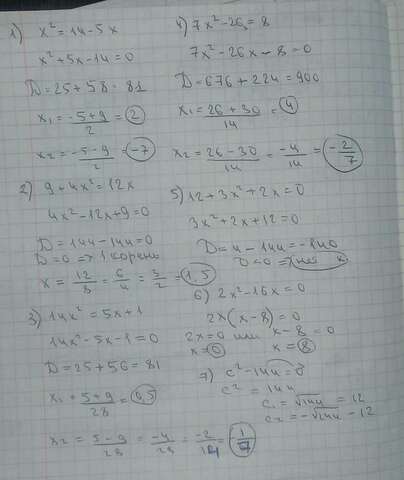 1) x² = 14 - 5x
x² + 5x - 14 = 0
D = 25 + 58 = 81
x₁ = -5+9/2 = 2
x₂ = -5-9/2 = -7
2) 9 + 4x² = 12x
4x² - 12x + 9 = 0
D = 144 - 144 = 0
D = 0 => 1 корень
x = 12/8 = 6/4 = 3/2 = 1,5
3) 14x² = 5x + 1
14x² - 5x - 1 = 0
D = 25 + 56 = 81
x₁ = 5+9/28 = 0,5
x₂ = 5-9/28 = -4/28 = -2/14 = -1/7
4) 7x² - 26x = 8
7x² - 26x - 8 = 0
D = 676 + 224 = 900
x₁ = 26+30/14 = 4
x₂ = 26-30/14 = -4/14 = -2/7
5) 12 + 3x² + 2x = 0
3x² + 2x + 12 = 0
D = 4 - 144 = -140
D < 0 =>
6) 2x² - 16x = 0
2x(x - 8) = 0
2x = 0 или x - 8 = 0
x = 0 x = 8
7) c² - 144 = 0
c² = 144
c₁ = √144 = 12
c₂ = -√144 - 12